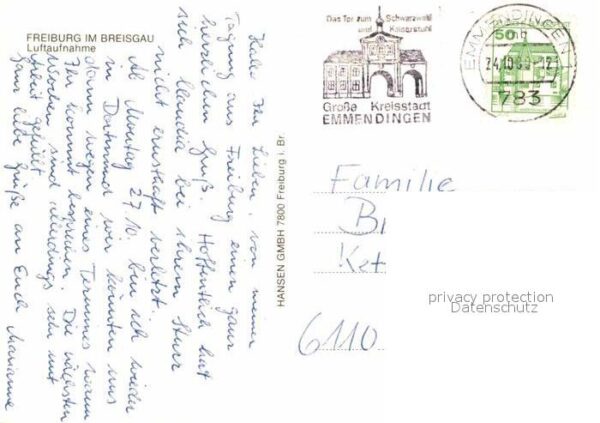 FREIBURG IM BREISGAU
Luftaufnahme
Hallo Ihr Lieben, von meiner
Tagung aus Freiburg einen ganz
herzlichen Gruß. Hoffentlich hat
sich Claudia bei ihrem Sturz
nicht ernsthaft verletzt.
Ab Montag 27.10. bin ich wieder
in Dortmund wir könnten uns
dann wegen eines Termines wann
Ihr kommt besprechen. Die nächsten
Wochen sind allerdings sehr mit
Arbeit gefüllt.
Ganz liebe Grüße an Euch Marianne
HANSEN GMBH 7800 Freiburg i. Br.
Das Tor zum Schwarzwald
und Kaiserstuhl
Große Kreisstadt
EMMENDINGEN
EMMENDINGEN
24.10.80-12
783
50
Familie
B
Ket
6110
privacy protection
Datenschutz